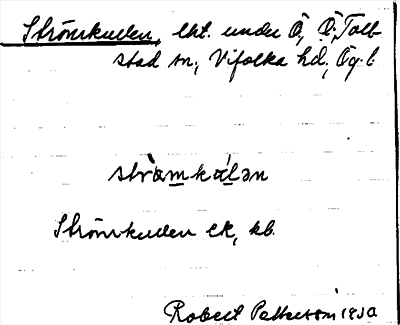 Strömkullen, lht. under Ö, Ö. Toll-
stad sn, Vifolka hd, Ög. l.
stràmkálən
Strömkullen ek, kb.
Robert Petterson 1930